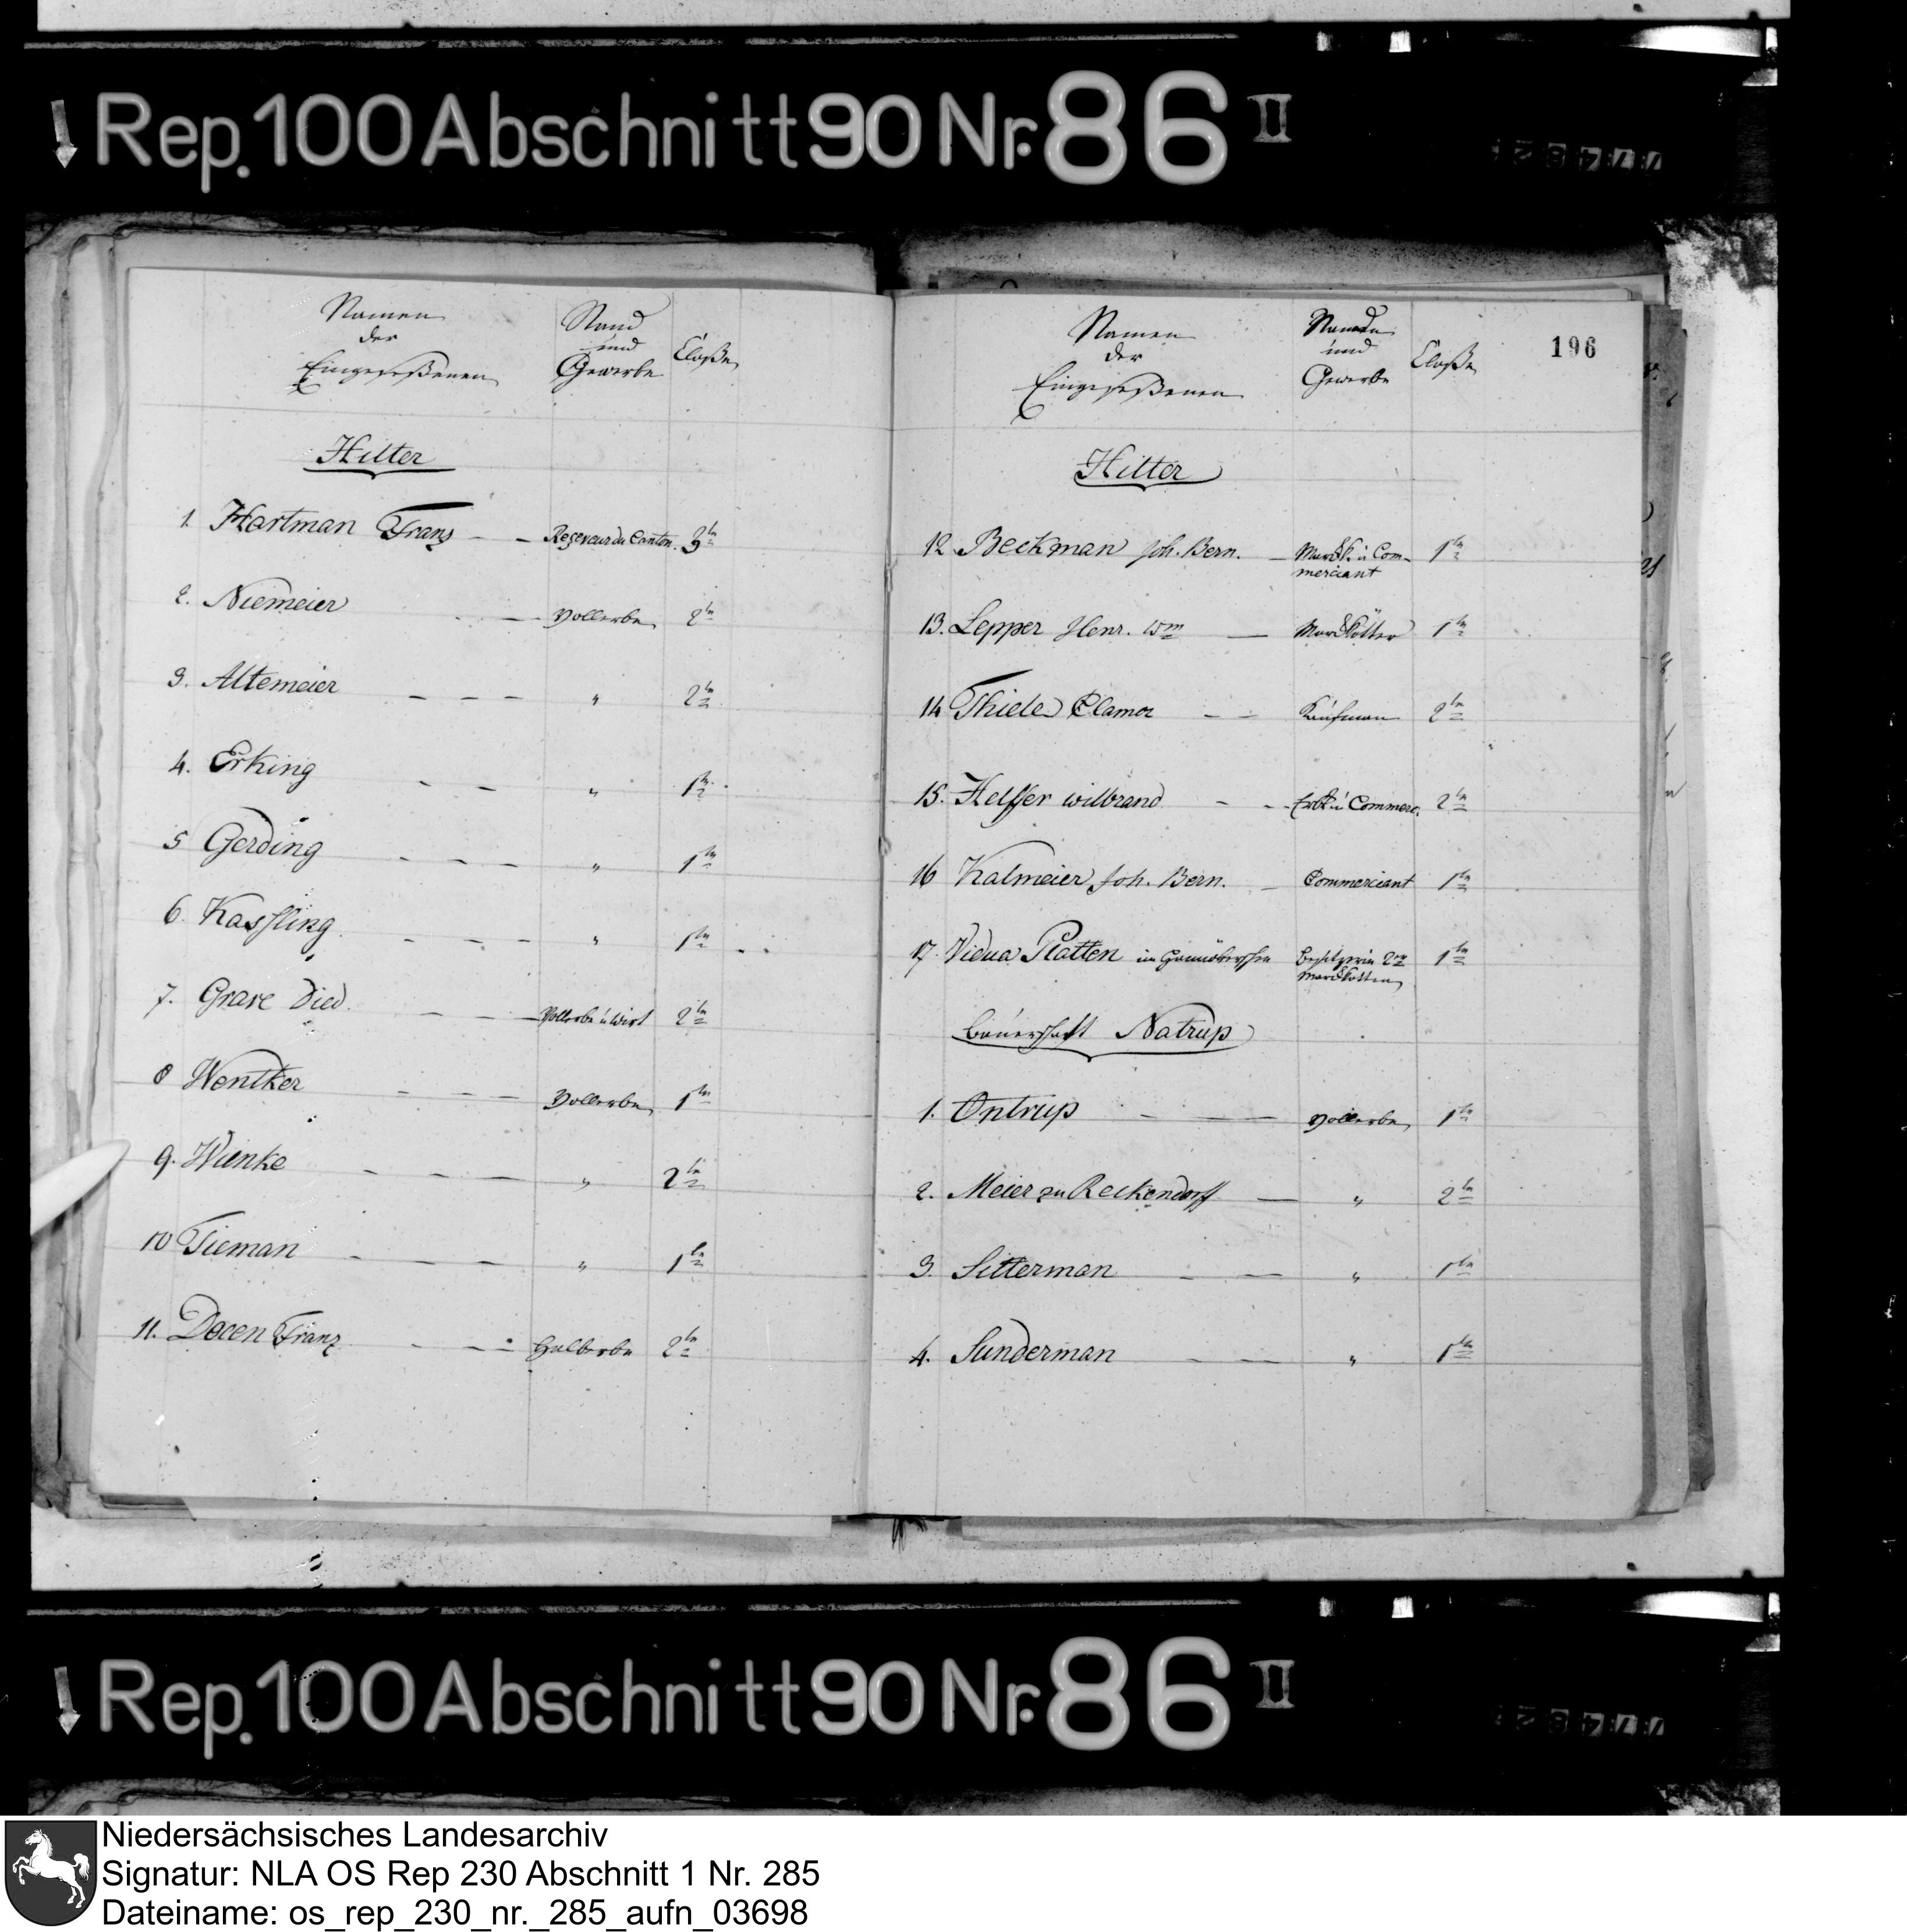 Rep. 100 Abschnitt 90 Nr. 86 II
Namen
der
Eingeseßenen
Stand
und
Gewerbe
Claße
Hilter
1. Hartman Franz - - Receveur du Canton. 3te
2. Niemeier - - Vollerbe 2te
3. Altemeier - - - " 2te
4. Erking - - " 1te
5 Gerding - - - " 1te
6. Kassling - - - " 1te
7. Grave Died. - - - Vollerbe u Wirt 2te
8 Wentker - - - Vollerbe 1te
9. Wienke - - - " 2te
10 Tieman - - - " 1te
11. Decen Franz - - - Halberbe 2te
196
Namen
der
Eingeseßenen
und
Gewerbe
Claße
Hilter
12 Beckman Joh. Bern. - Markk. u Com-
merciant 1te
13. Lepper Henr. Wm — Markkötter 1te
14 Thiele Clamor - - Kaufman 2te
15. Helffer Wilbrand - - Erbk. u Commerc. 2te
16 Kalmeier Joh. Bern. - Commerciant 1te
17. Vidua Platten im Besitzerin 2er
Markkotten 1te
Bauerschaft Natrup
1. Ontrup - — Vollerbe 1te
2. Meier zu Reckendorff — " 2te
3. Sitterman - — " 1te
4. Sunderman - — " 1te
Rep. 100 Abschnitt 90 Nr. 86 II
Niedersächsisches Landesarchiv
Signatur: NLA OS Rep 230 Abschnitt 1 Nr. 285
Dateiname: os_rep_230_nr._285_aufn_03698